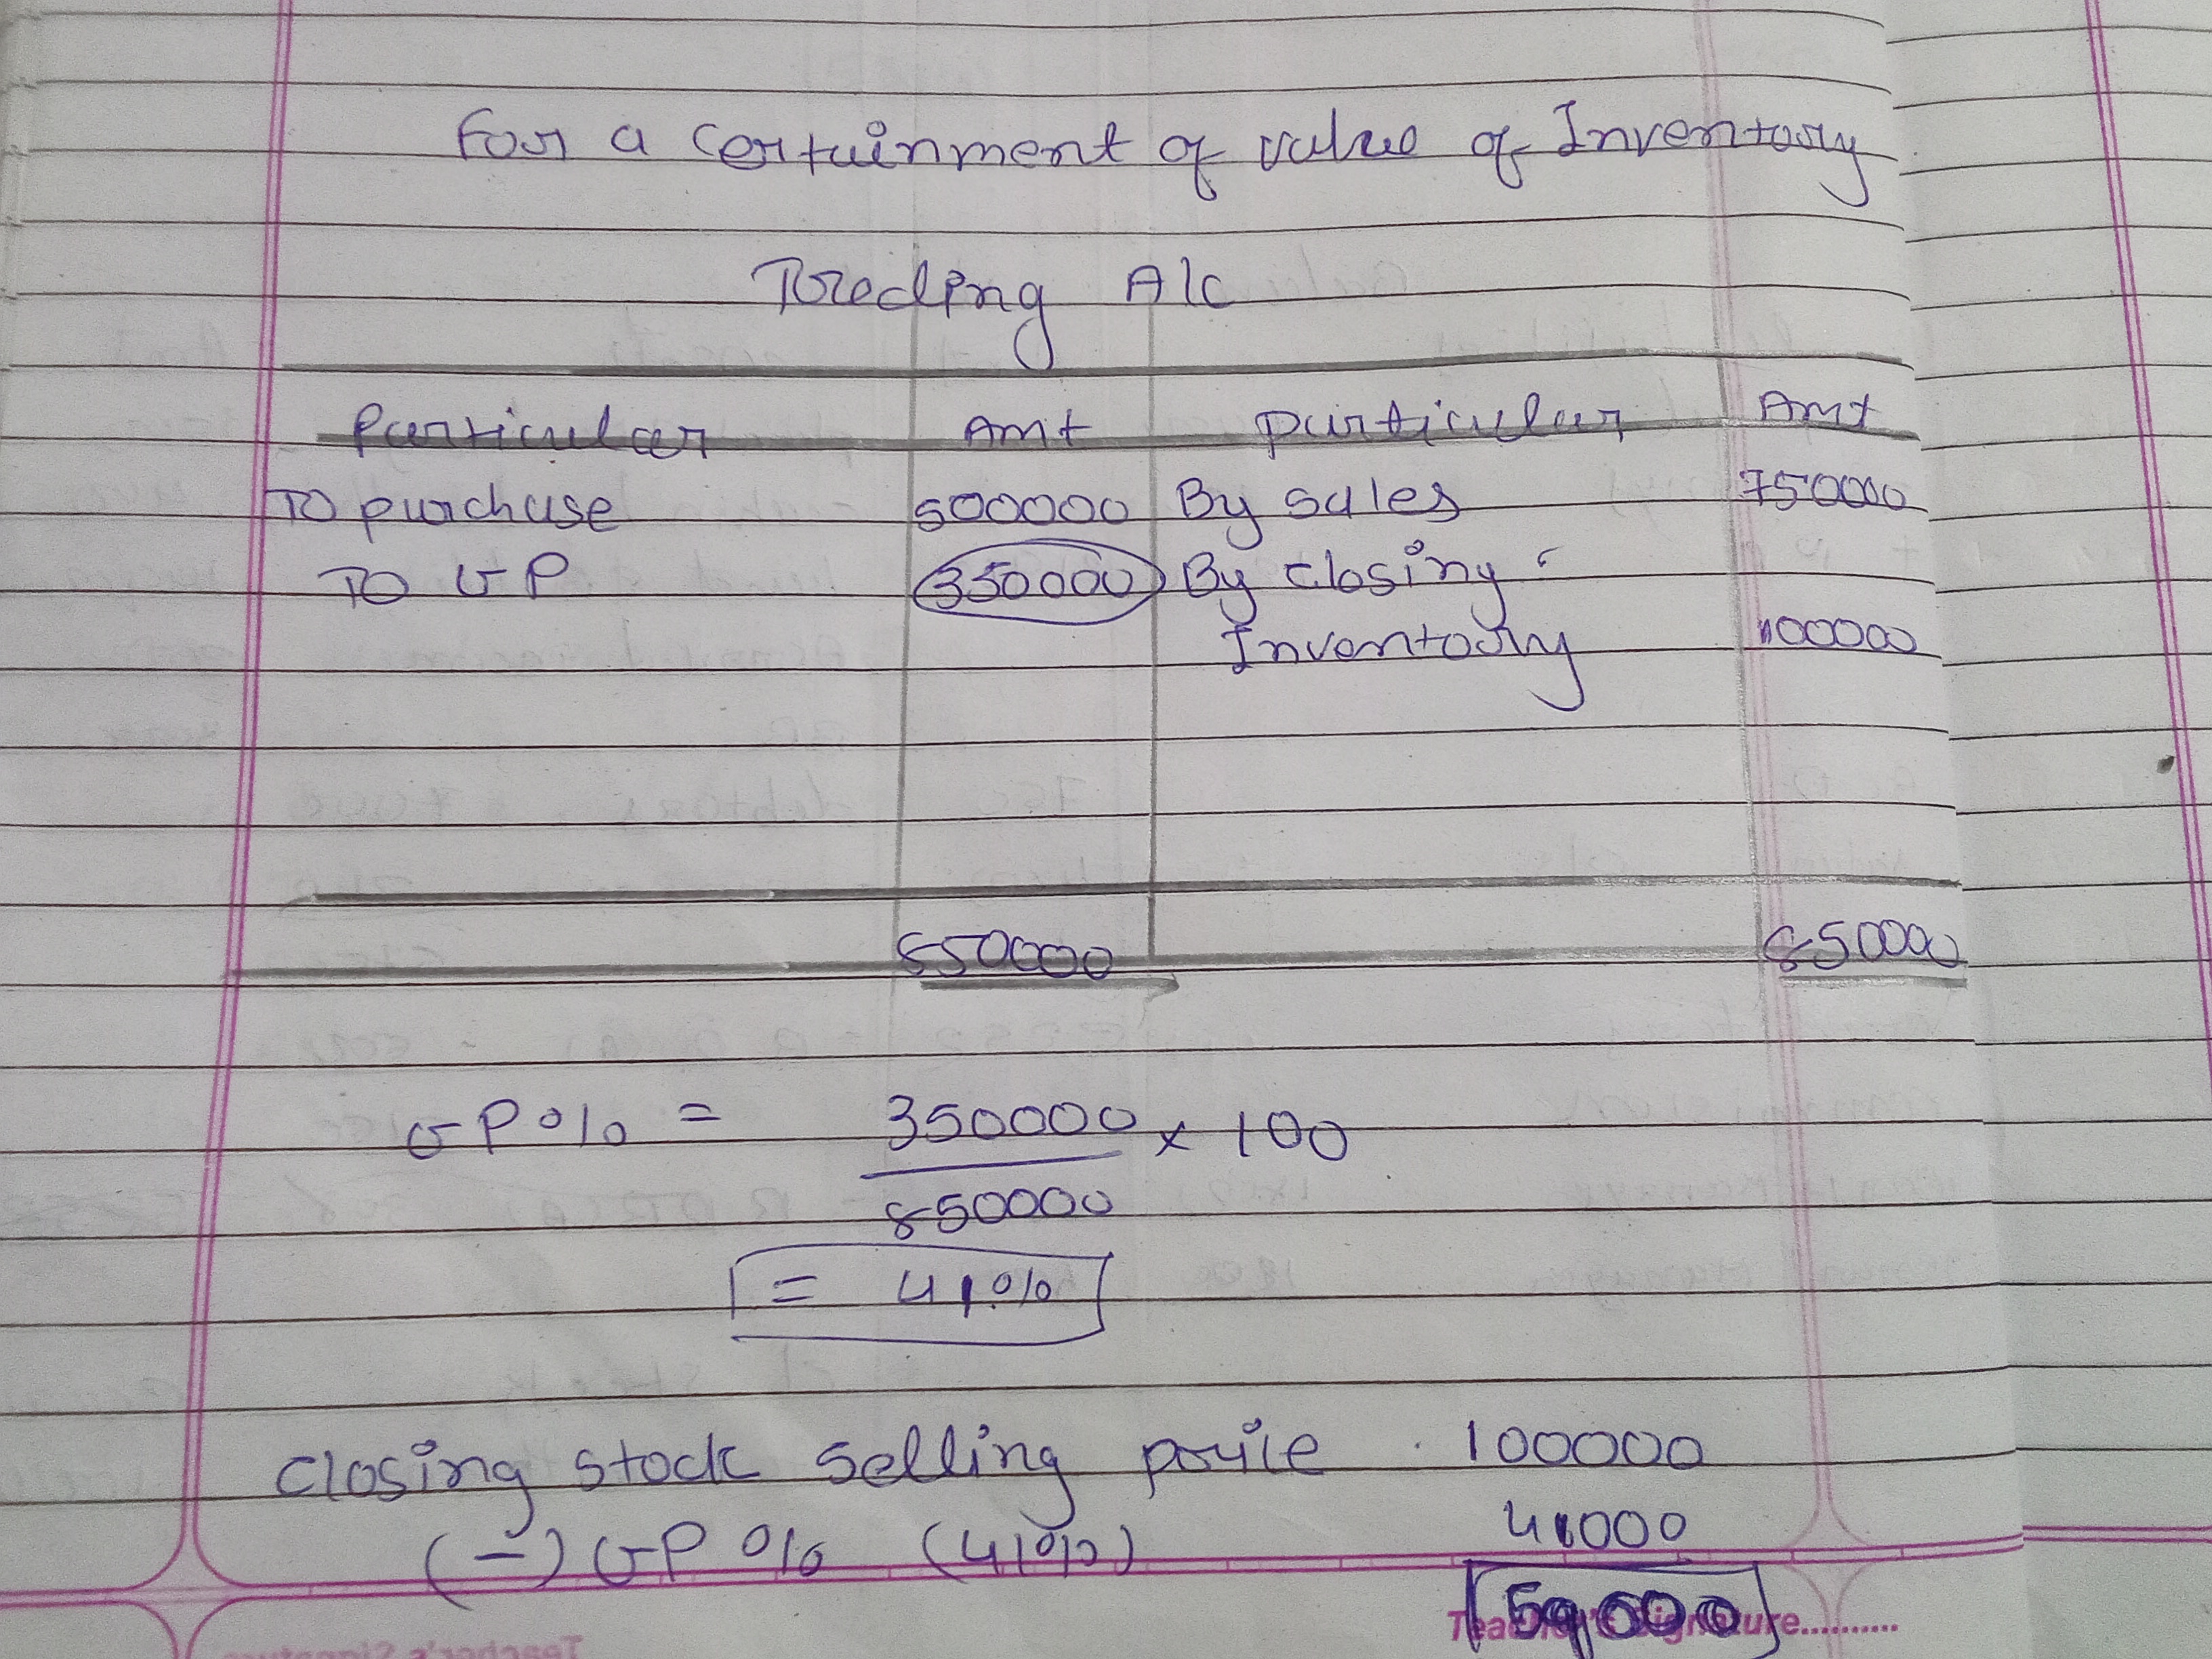 For a certainment of value of Inventory
Treding A/c
Particular Amt particular Amt
To purchase 500000 By sales 750000
To GP 350000 By closing
Inventory 100000
850000 850000
GP% = 350000 × 100
850000
= 41%
closing stock selling price 100000
(-) GP % (41%) 41000
59000
Teacher's Signature..........
Teacher's Signature